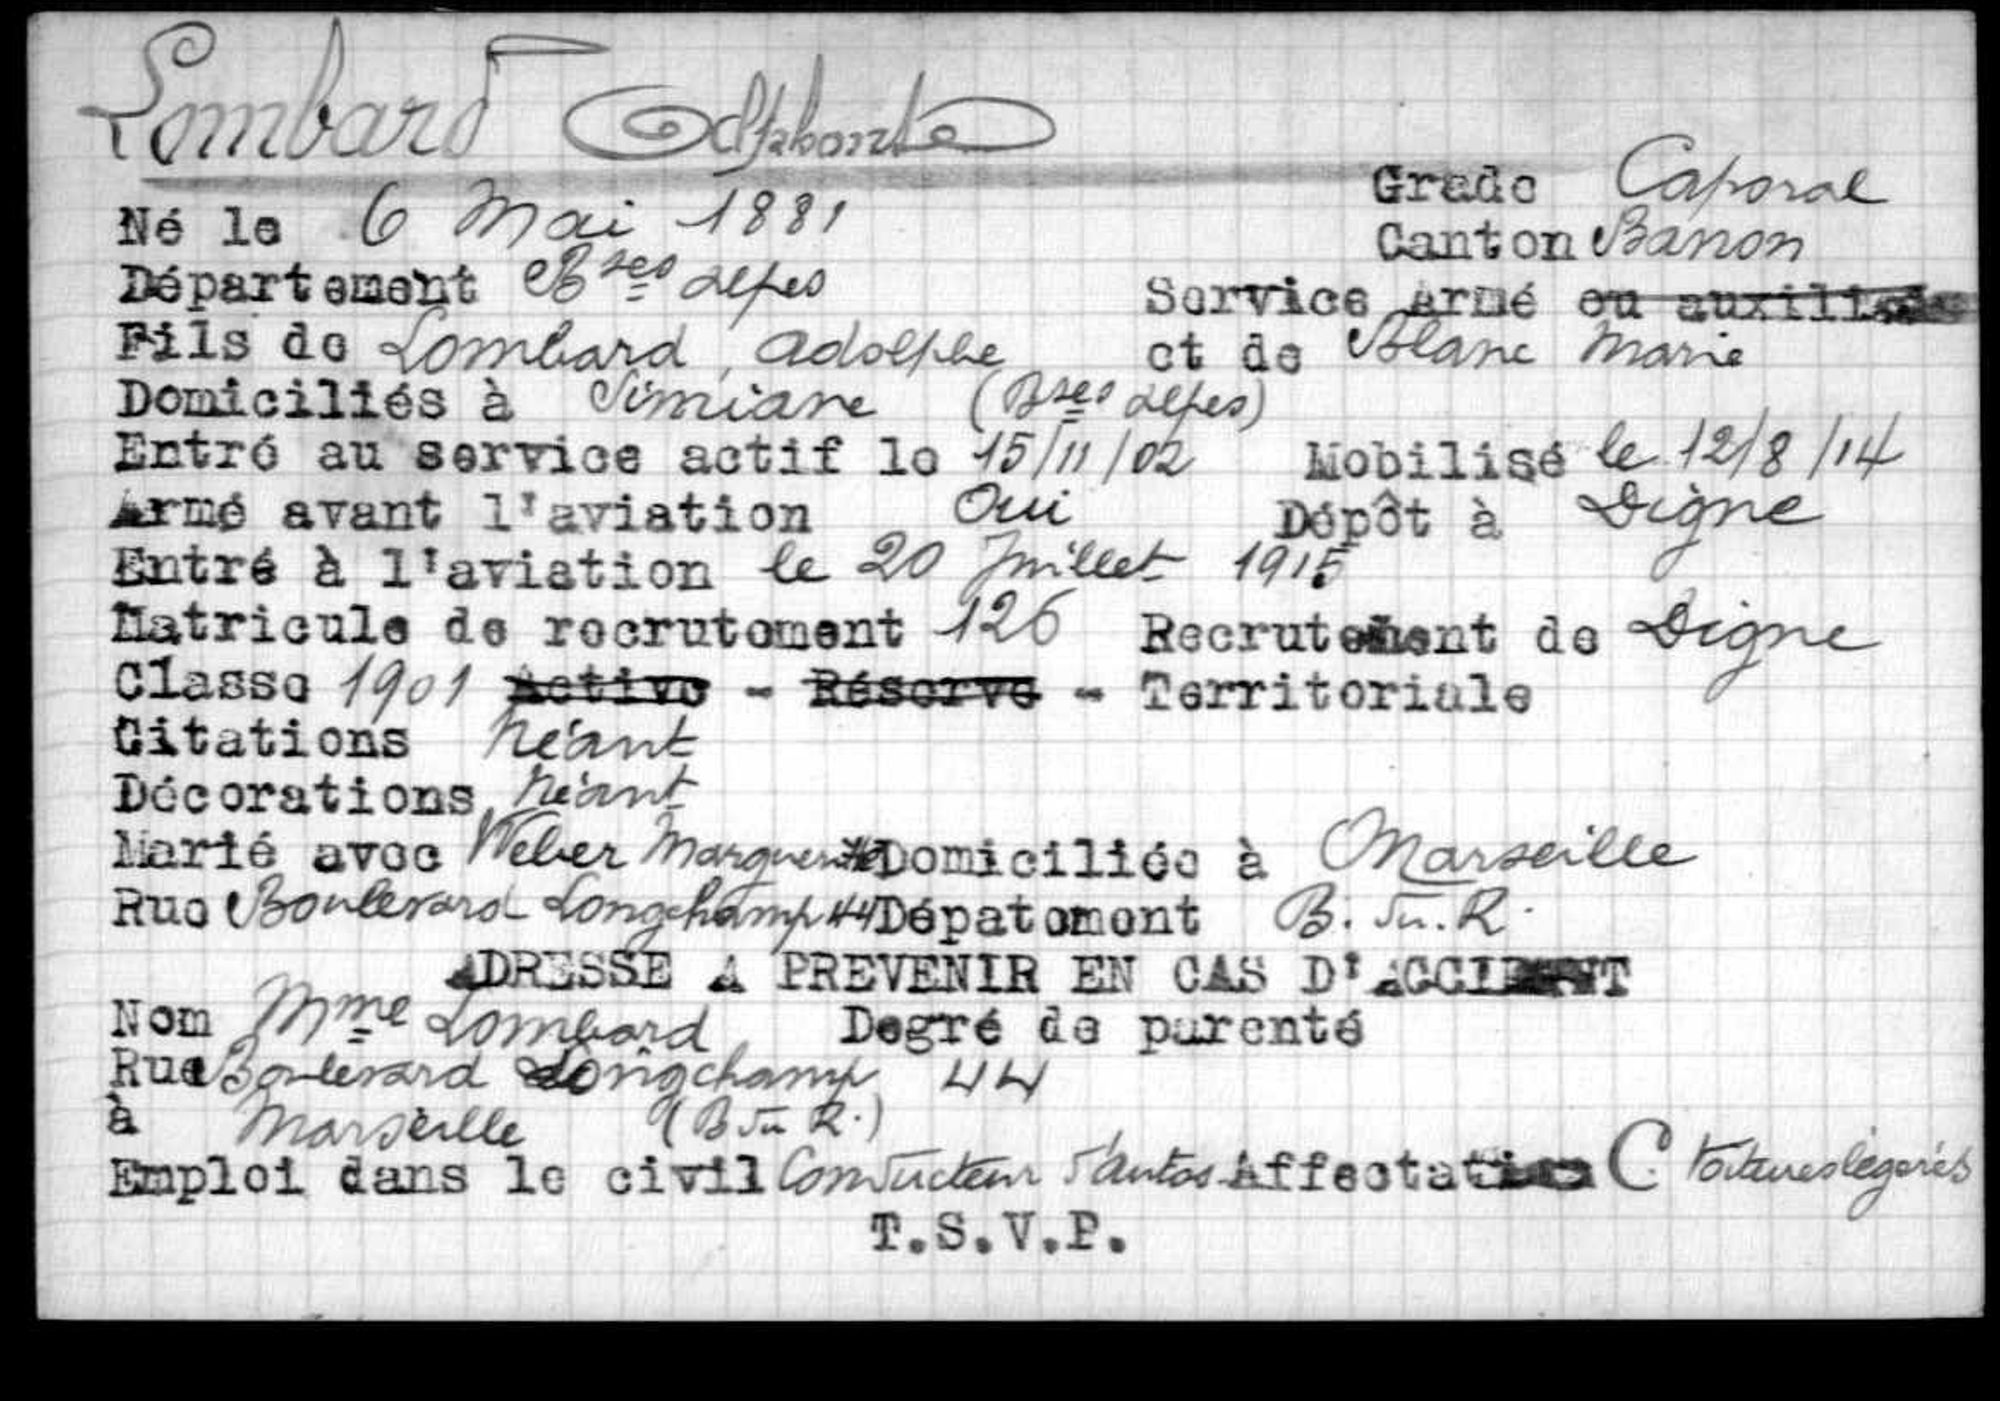 Lombard
Grade Caporal
Né le 6 Mai 1881
Canton Banon
Département Bses Alpes
Service Armé ou auxiliaire
Fils de Lombard, Adolphe et de Blanc Marie
Domiciliés à Simiane (Bses Alpes)
Entré au service actif le 15/11/02 Mobilisé le 12/8/14
Armé avant l'aviation Oui Dépôt à Digne
Entré à l'aviation le 20 Juillet 1915
Matricule de recrutement 126 Recrutement de Digne
Classe 1901 Active - Réserve - Territoriale
Citations Néant
Décorations Néant
Marié avec Weber Marguerite Domiciliée à Marseille
Rue Boulevard Longchamp 44 Dépatement B. du. R.
ADRESSE A PREVENIR EN CAS D'ACCIDENT
Nom Mme Lombard Degré de parenté
Rue Boulevard Longchamp 44
à Marseille (B du R.)
Emploi dans le civil Conducteur d'autos Affectation C
T.S.V.P.